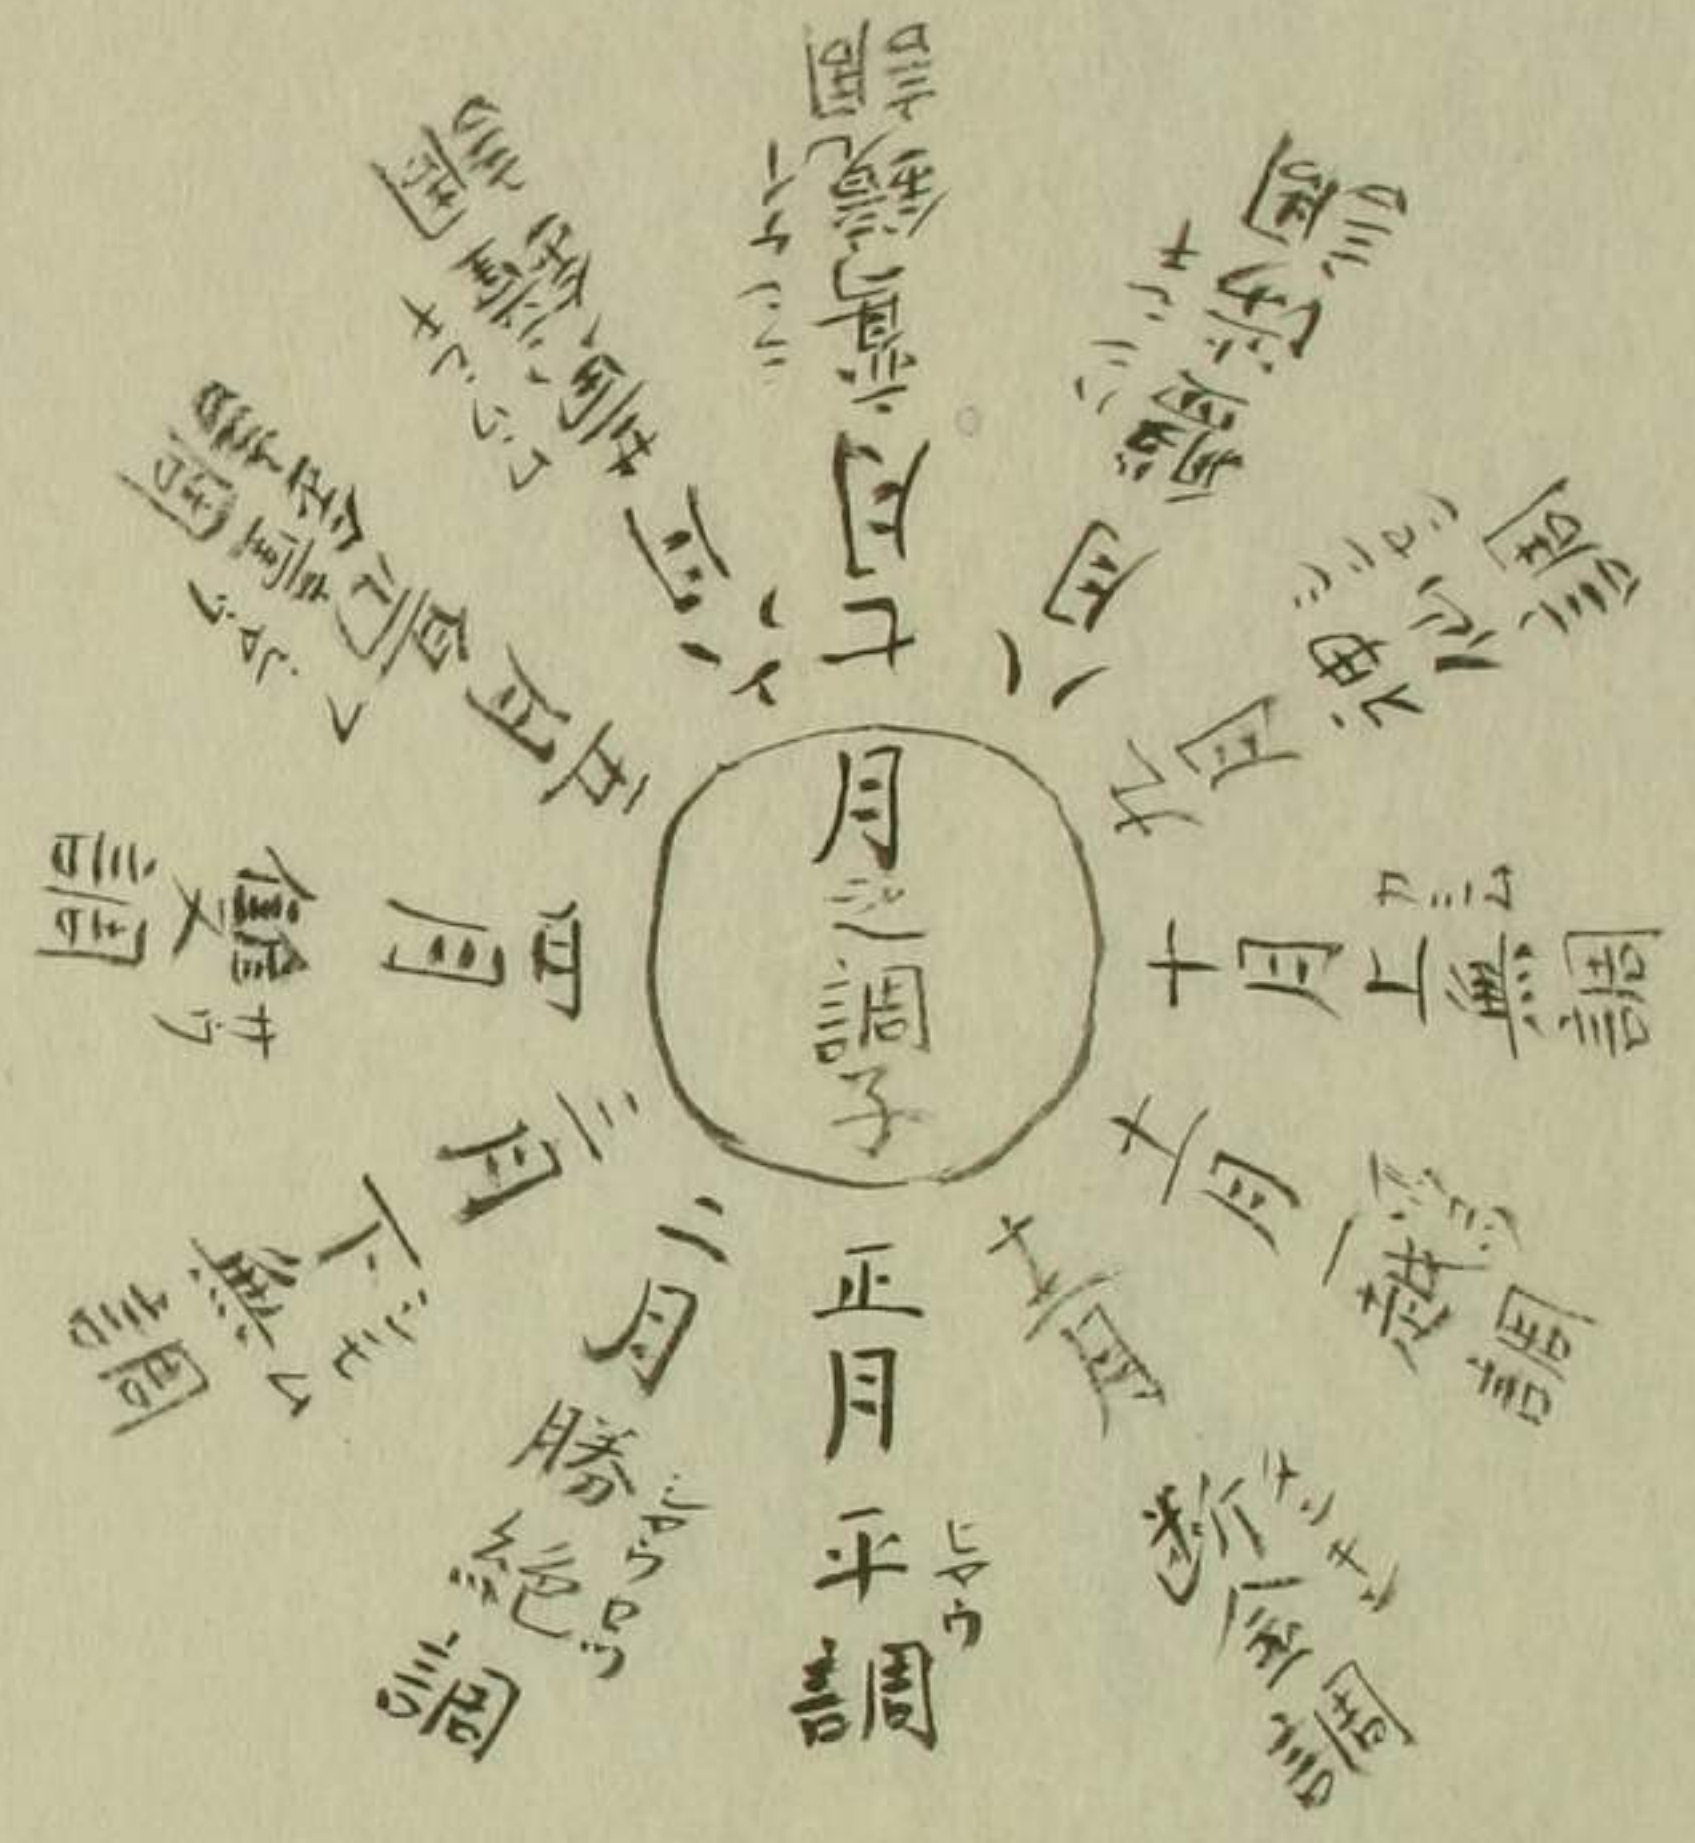 月之調子
正月平調
ヒヤウ
二月勝絶調
三月下無調
シモム
四月雙調
サウ
五月鳧鐘調
フシヤウ
六月黄鐘調
ワウシキ
七月鸞鏡調
ランケイ
八月盤渉調
バンシキ
九月神仙調
シンセン
十月上無調
カミム
十一月一越調
十二月断金調
タンキン